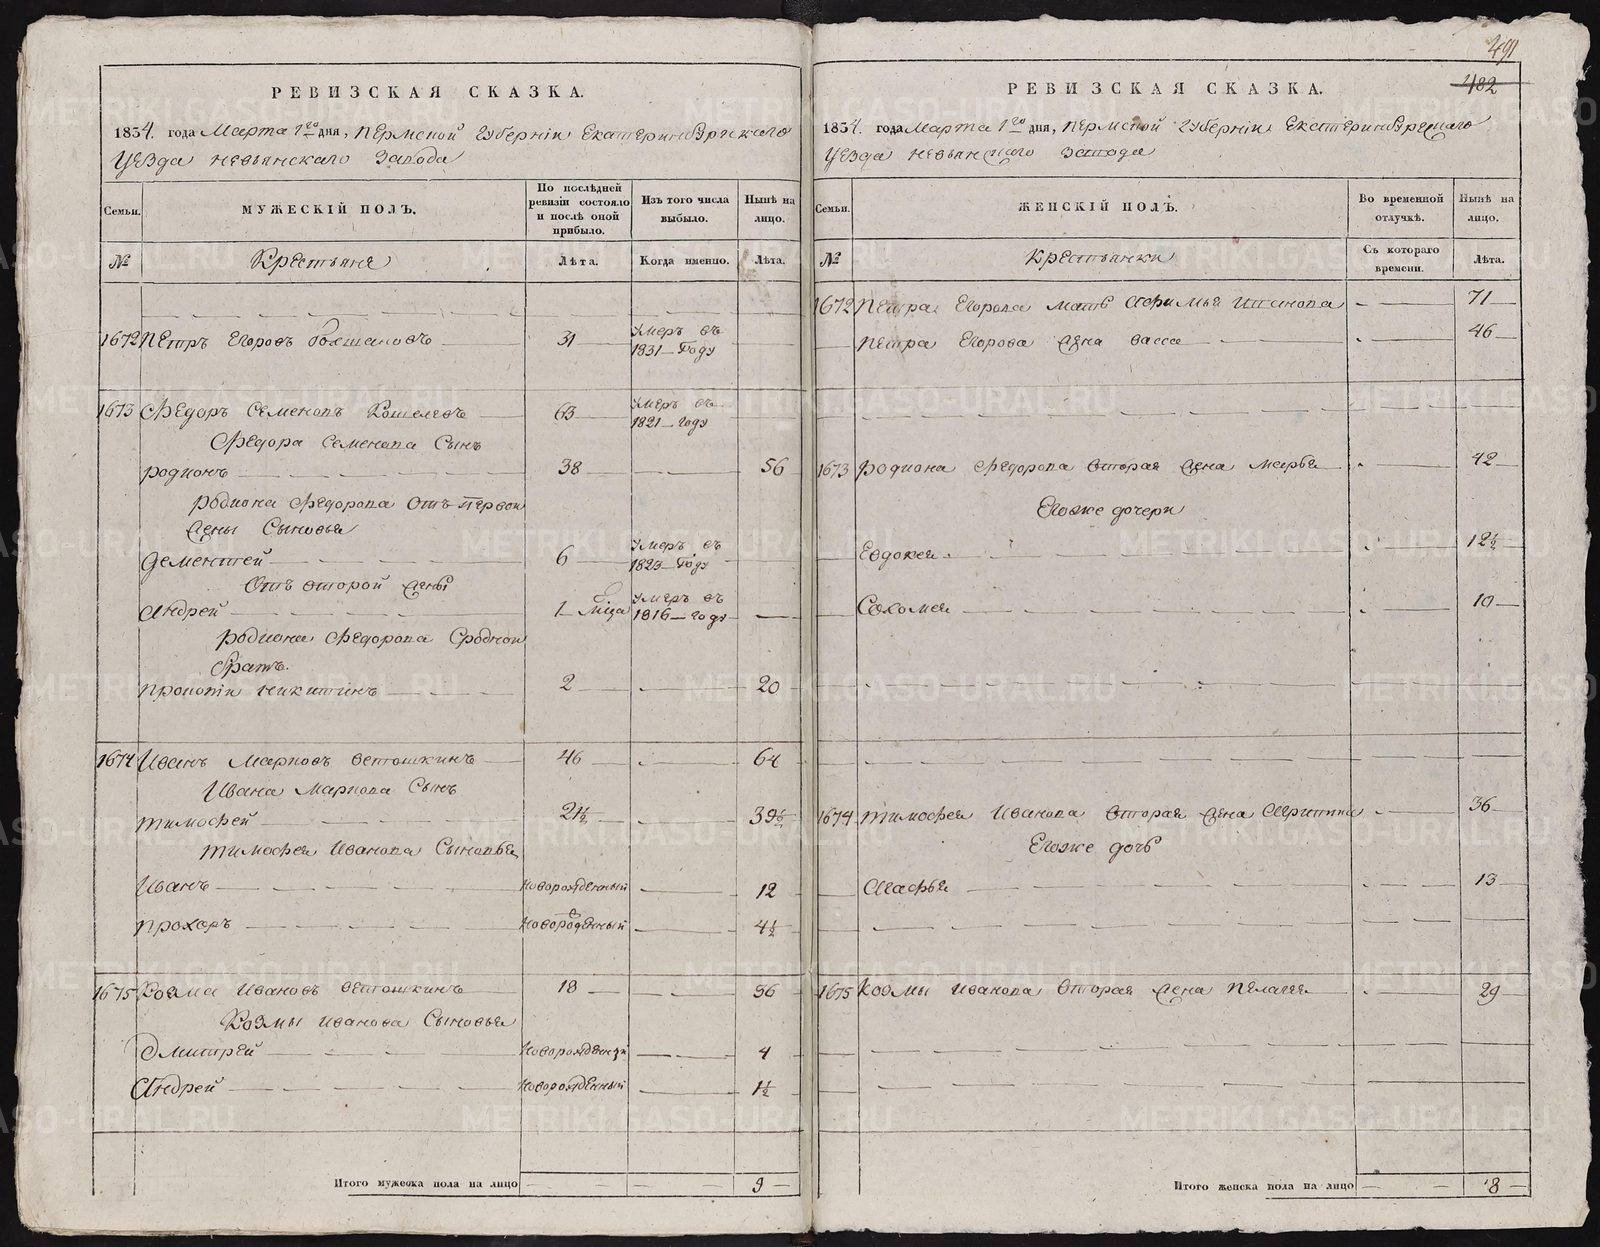 491
482
РЕВИЗСКАЯ СКАЗКА.
1834. года Марта 1го дня, Пермской Губернiи Екатеринбургскаго
Уезда Невьянскаго Завода
Семьи. МУЖЕСКIЙ ПОЛЪ. По послѣдней ревизiи состояло и послѣ оной прибыло. Изъ того числа выбыло. Нынѣ на лицо.
№ Крестьяне Лѣта. Когда именно. Лѣта.
1672 Петръ Егоровъ 31 Умеръ въ 1831 Году
1673 Федоръ Семеновъ Кошелевъ 63 Умеръ въ 1821 Году
Федора Семенова Сынъ
Родионъ 38 56
Родиона Федорова Отъ первой
жены Сыновья
Дементей 6 Умеръ въ 1823 Году
Отъ второй жены
Андрей 1 Мца Умеръ въ 1816 Году
Родиона Федорова Сродной
братъ.
Прокопiи Никитинъ 2 20
1674 Иванъ Марковъ Ветошкинъ 46 64
Ивана Маркова Сынъ
Тимофей 21½ 39½
Тимофея Иванова Сыновья
Иванъ Новорожденный 12
Прохоръ Новорожденный 4½
1675 Козма Ивановъ Ветошкинъ 18 36
Козмы Иванова Сыновья
Дмитрей Новорожденный 4
Андрей Новорожденный 1½
Итого мужеска пола на лицо 9
РЕВИЗСКАЯ СКАЗКА.
1834. года Марта 1го дня, Пермской Губернiи Екатеринбургскаго
Уезда Невьянскаго Завода
Семьи. ЖЕНСКIЙ ПОЛЪ. Во временной отлучкѣ. Нынѣ на лицо.
№ Крестьянки Съ котораго времени. Лѣта.
1672 Петра Егорова мать Афимья Иванова 71
Петра Егорова жена Васса 46
1673 Родиона Федорова вторая жена Марья 42
Егоже дочери
Евдокея 12½
Соломея 10
1674 Тимофея Иванова вторая жена Агрипина 36
Егоже дочь
Агафья 13
1675 Козмы Иванова вторая жена Пелагея 29
Итого женска пола на лицо 8
METRIKI.GASO-URAL.RU